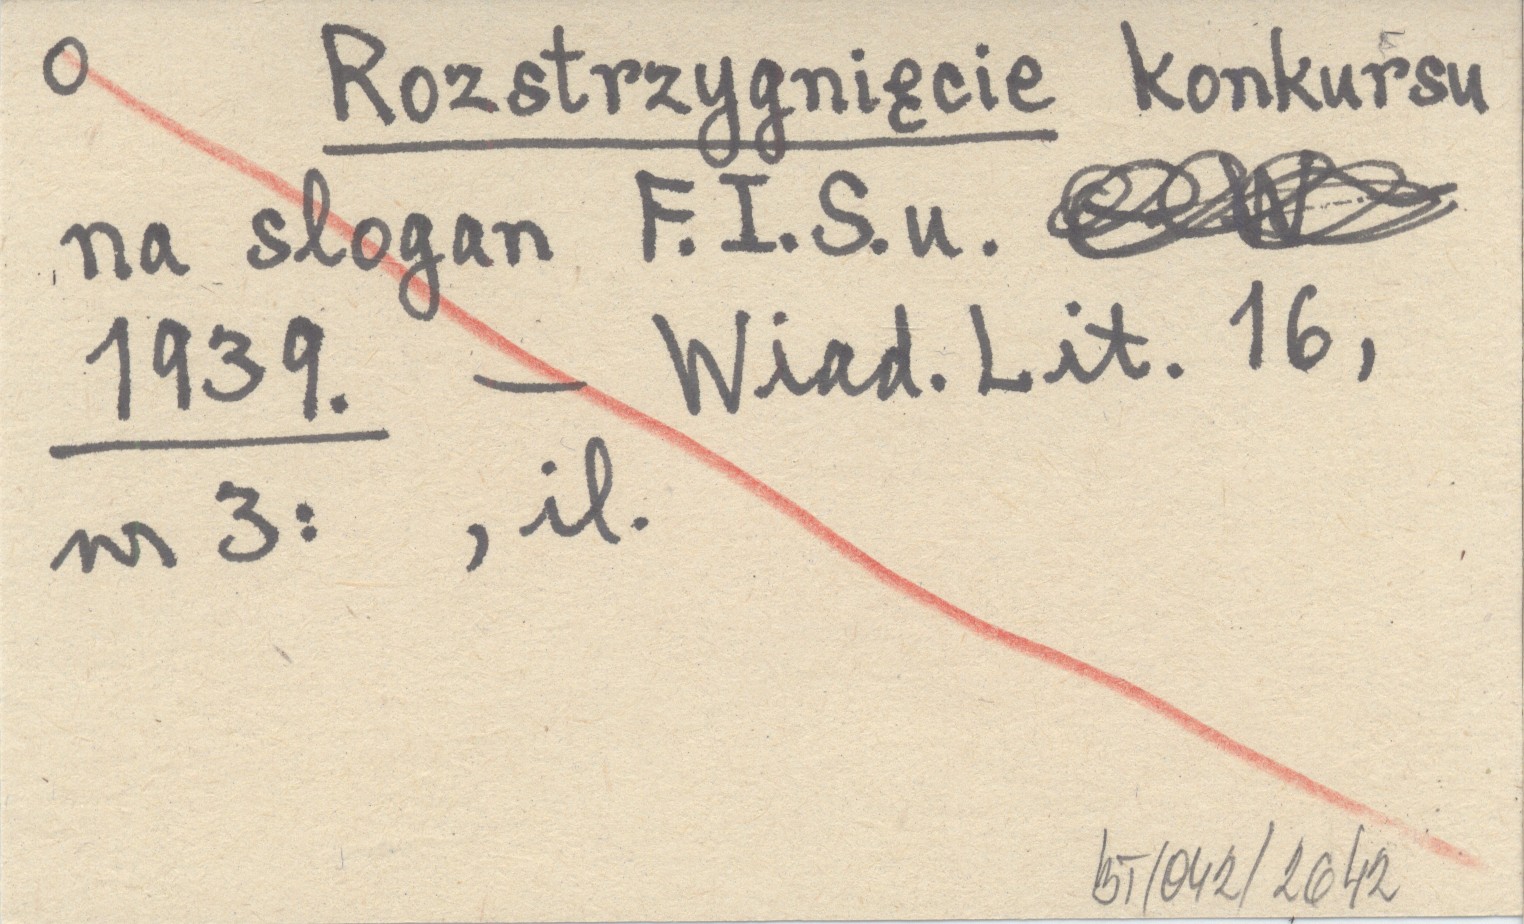 O Rozstrzygnięcie konkursu
na slogan F.I.S.u.
1939. — Wiad. Lit. 16,
nr 3: , il.
BT/042/2642